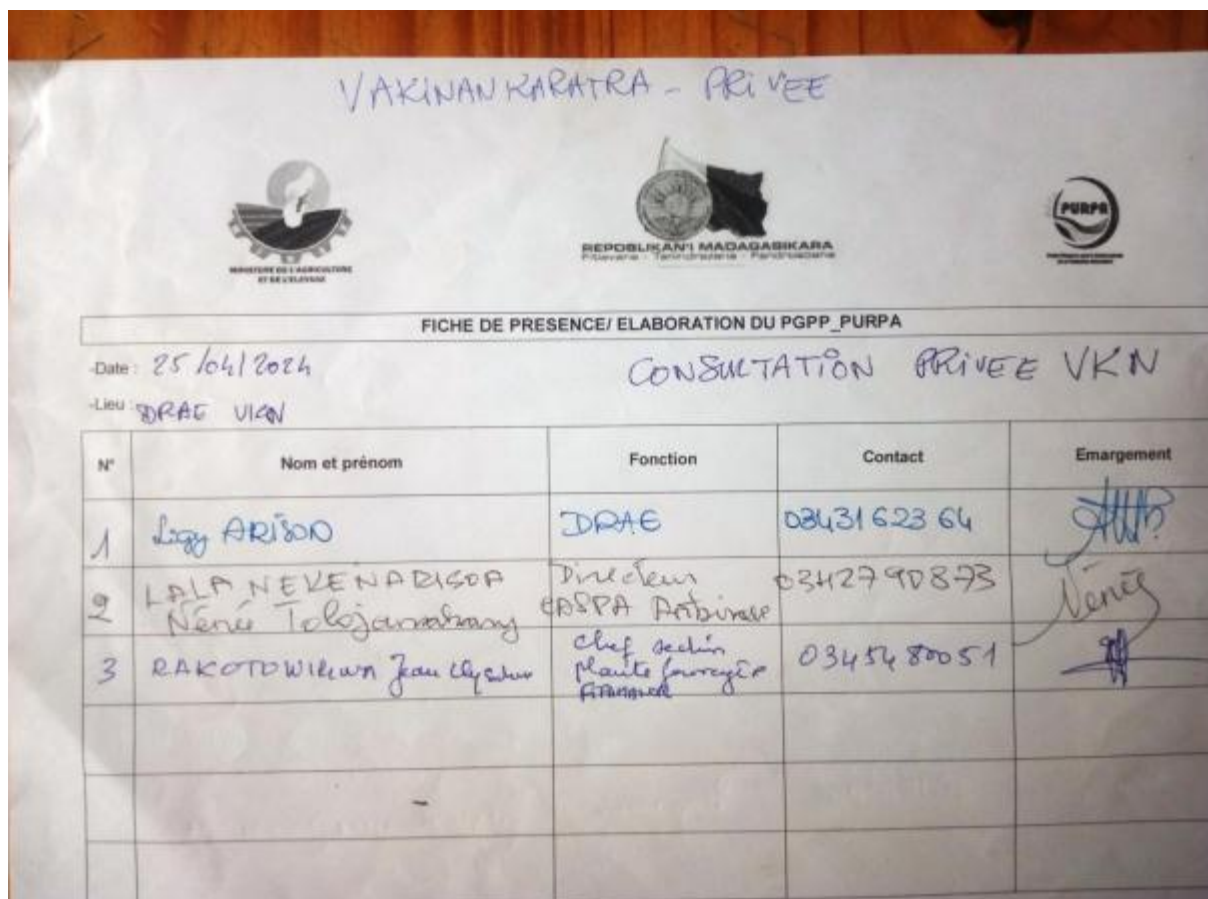 VAKINANKARATRA - PRiVEE
MINISTERE DE L'AGRICULTURE
ET DE L'ELEVAGE
REPOBLIKAN'I MADAGASIKARA
Fitiavana - Tanindrazana - Fandrosoana
PURPA
FICHE DE PRESENCE/ ELABORATION DU PGPP_PURPA
-Date : 25/04/2024
CONSULTATiON PRiVEE VKN
-Lieu : DRAE VKN
N° Nom et prénom Fonction Contact Emargement
1 Ligy ARISON DRAE 0343162364
2 LALA NEKENARISOA Directeur 0342790873 Nénée
Nénée CASPA
3 RAKOTOWIRINA Jean chef section 0345480051
plante fourragère
FIFAMANOR